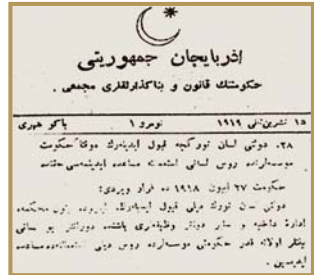 اذربایجان جمهوریتی
حکومتنك قانون و بناگذارلقلری مجمعی .
۱۵ تشرین ثانی ۱۹۱۹ نومرو ۱ باکو شهری
۲۸. دولتی لسان تورکجه قبول ایدیلەرك موقتاً حکومت
موسسه‌لرنده روس لسانی استعمالنه مساعده ایدیلمه‌سی حقنده
حکومت ۲۷ ایون ۱۹۱۸ ده قرار ویردی:
دولتی لسان تورك دیلی قبول
اداره داخلیه و سایر دولتی وظیفه‌لری باشنده دورانلر بو لسانی
بیلنلر اولانه قدر حکومتی موسسه‌لرده روس دیلی مساعده
ایدیلسین .